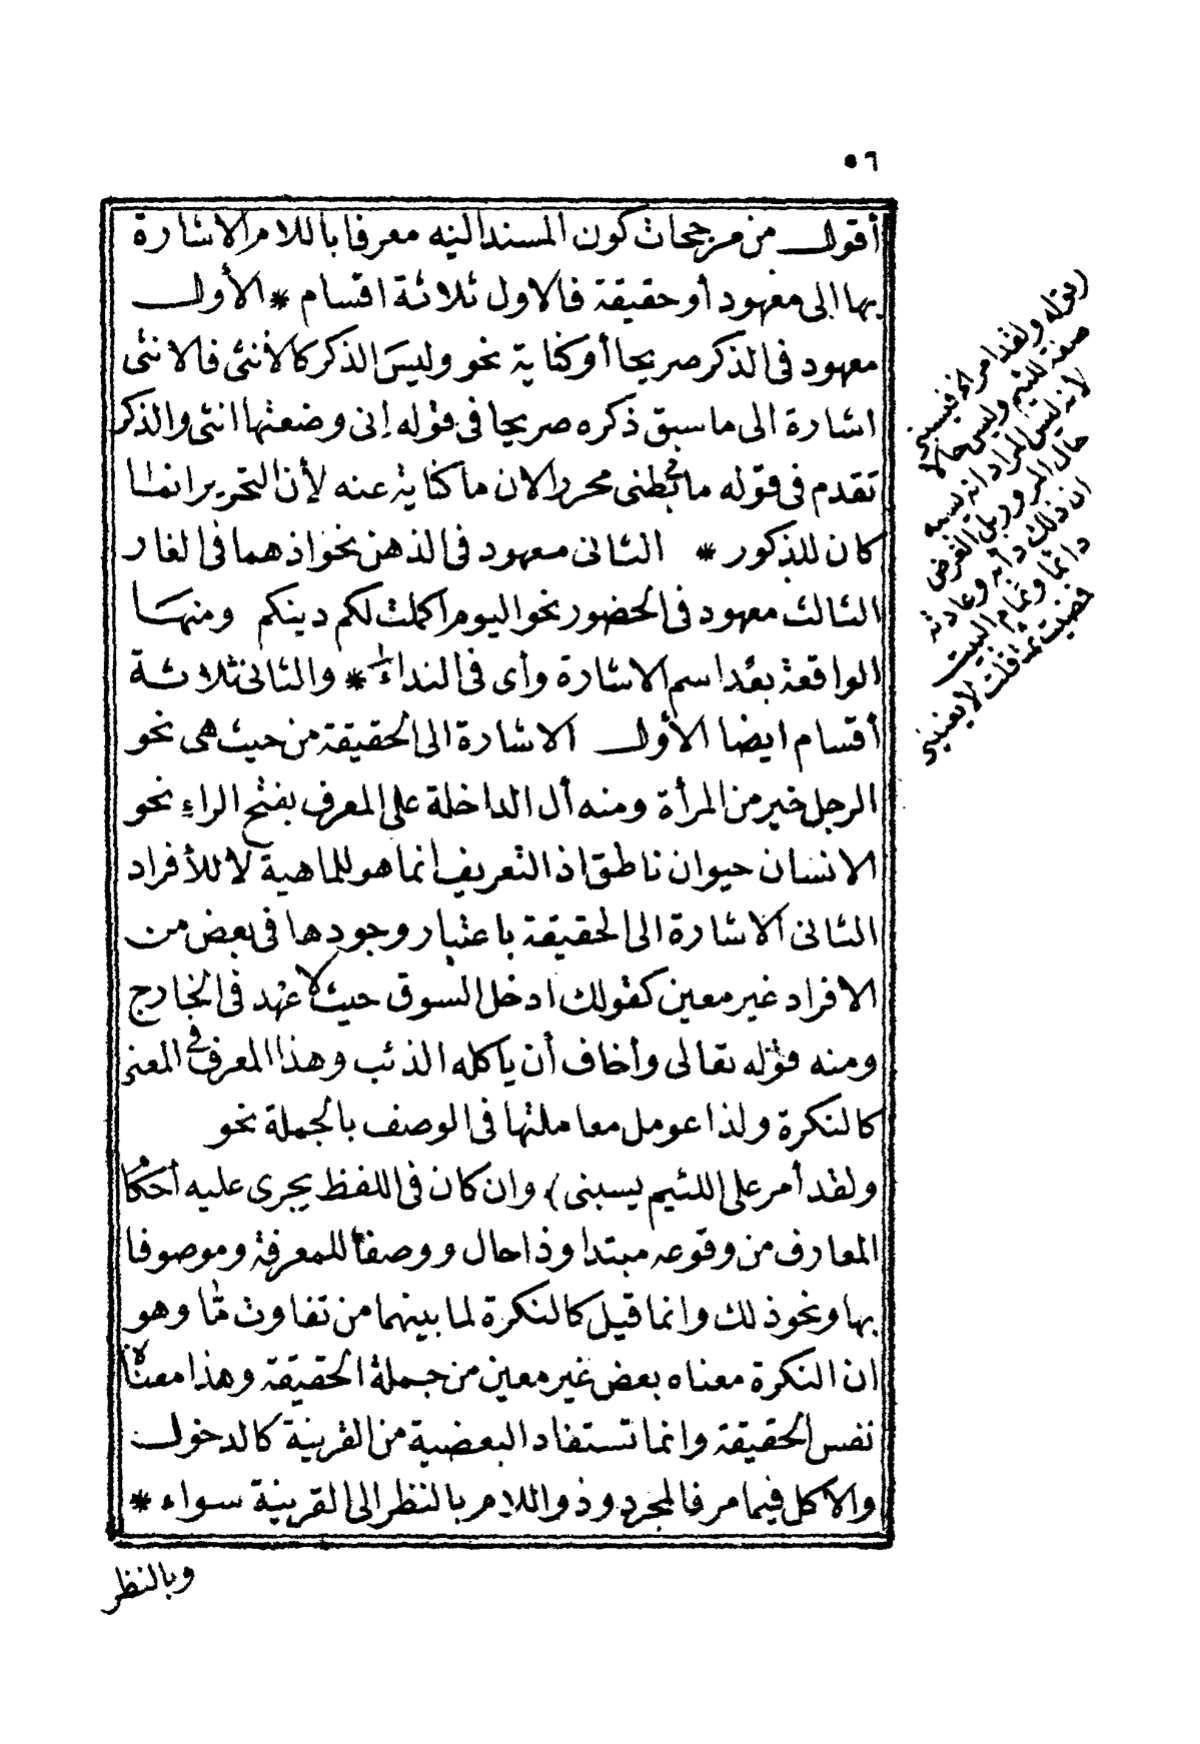 ٥٦
أقول من مرجحات كون المسند اليه معرفا باللام الاشارة
بها الى معهود أو حقيقة فالاول ثلاثة اقسام * الأول
معهود فى الذكر صريحا أو كناية نحو وليس الذكر كالأنثى فالانثى
اشارة الى ما سبق ذكره صريحا فى قوله إنى وضعتها انثى والذكر
تقدم فى قوله ما فى بطنى محررا لان ما كناية عنه لأن التحرير انما
كان للذكور * الثانى معهود فى الذهن نحو اذ هما فى الغار
الثالث معهود فى الحضور نحو اليوم اكملت لكم دينكم ومنها
الواقعة بعد اسم الاشارة وأى فى النداء * والثانى ثلاثة
أقسام ايضا الأول الاشارة الى الحقيقة من حيث هى نحو
الرجل خير من المرأة ومنه أل الداخلة على المعرف بفتح الراء نحو
الانسان حيوان ناطق اذ التعريف انما هو للماهية لا للأفراد
الثانى الاشارة الى الحقيقة باعتبار وجودها فى بعض من
الافراد غير معين كقولك ادخل السوق حيث لا عهد فى الخارج
ومنه قوله تعالى وأخاف أن ياكله الذئب وهذا المعرف فى المعنى
كالنكرة ولذا عومل معاملتها فى الوصف بالجملة نحو
ولقد أمر على اللئيم يسبنى) وان كان فى اللفظ يجرى عليه أحكام
المعارف من وقوعه مبتدا وذا حال ووصفا للمعرفة وموصوفا
بها ونحو ذلك وانما قيل كالنكرة لما بينهما من تفاوت مّا وهو
ان النكرة معناه بعض غير معين من جملة الحقيقة وهذا معناه
نفس الحقيقة وانما تستفاد البعضية من القرينة كالدخول
والاكل فيما مر فالمجرد وذو اللام بالنظر الى القرينة سواء *
وبالنظر
(قوله ولقد امر الخ فيسبنى
صفة للئيم وليس حالا
لانه ليس المراد انه يسبه
حال المرور بل الغرض
ان ذلك دأبه وعادته
دائما وتمام البيت
فمضيت ثمة قلت لا يعنينى